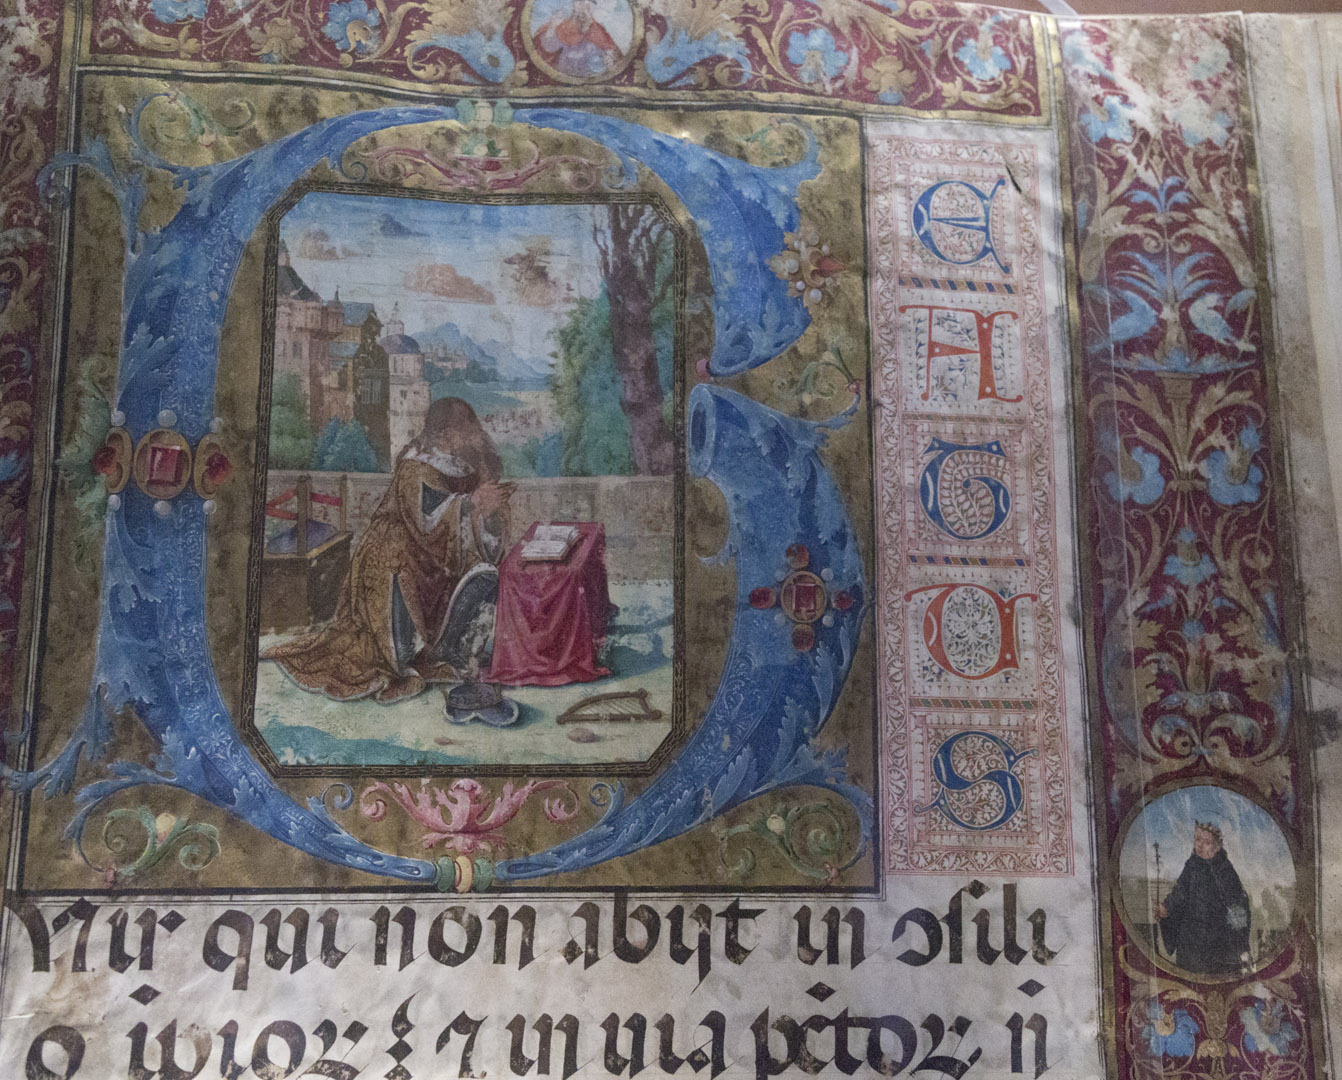 BEATUS
Vir qui non abijt in ↄsili
o ip̄ioꝝ ⁊ in uia pc̄toꝝ n̄